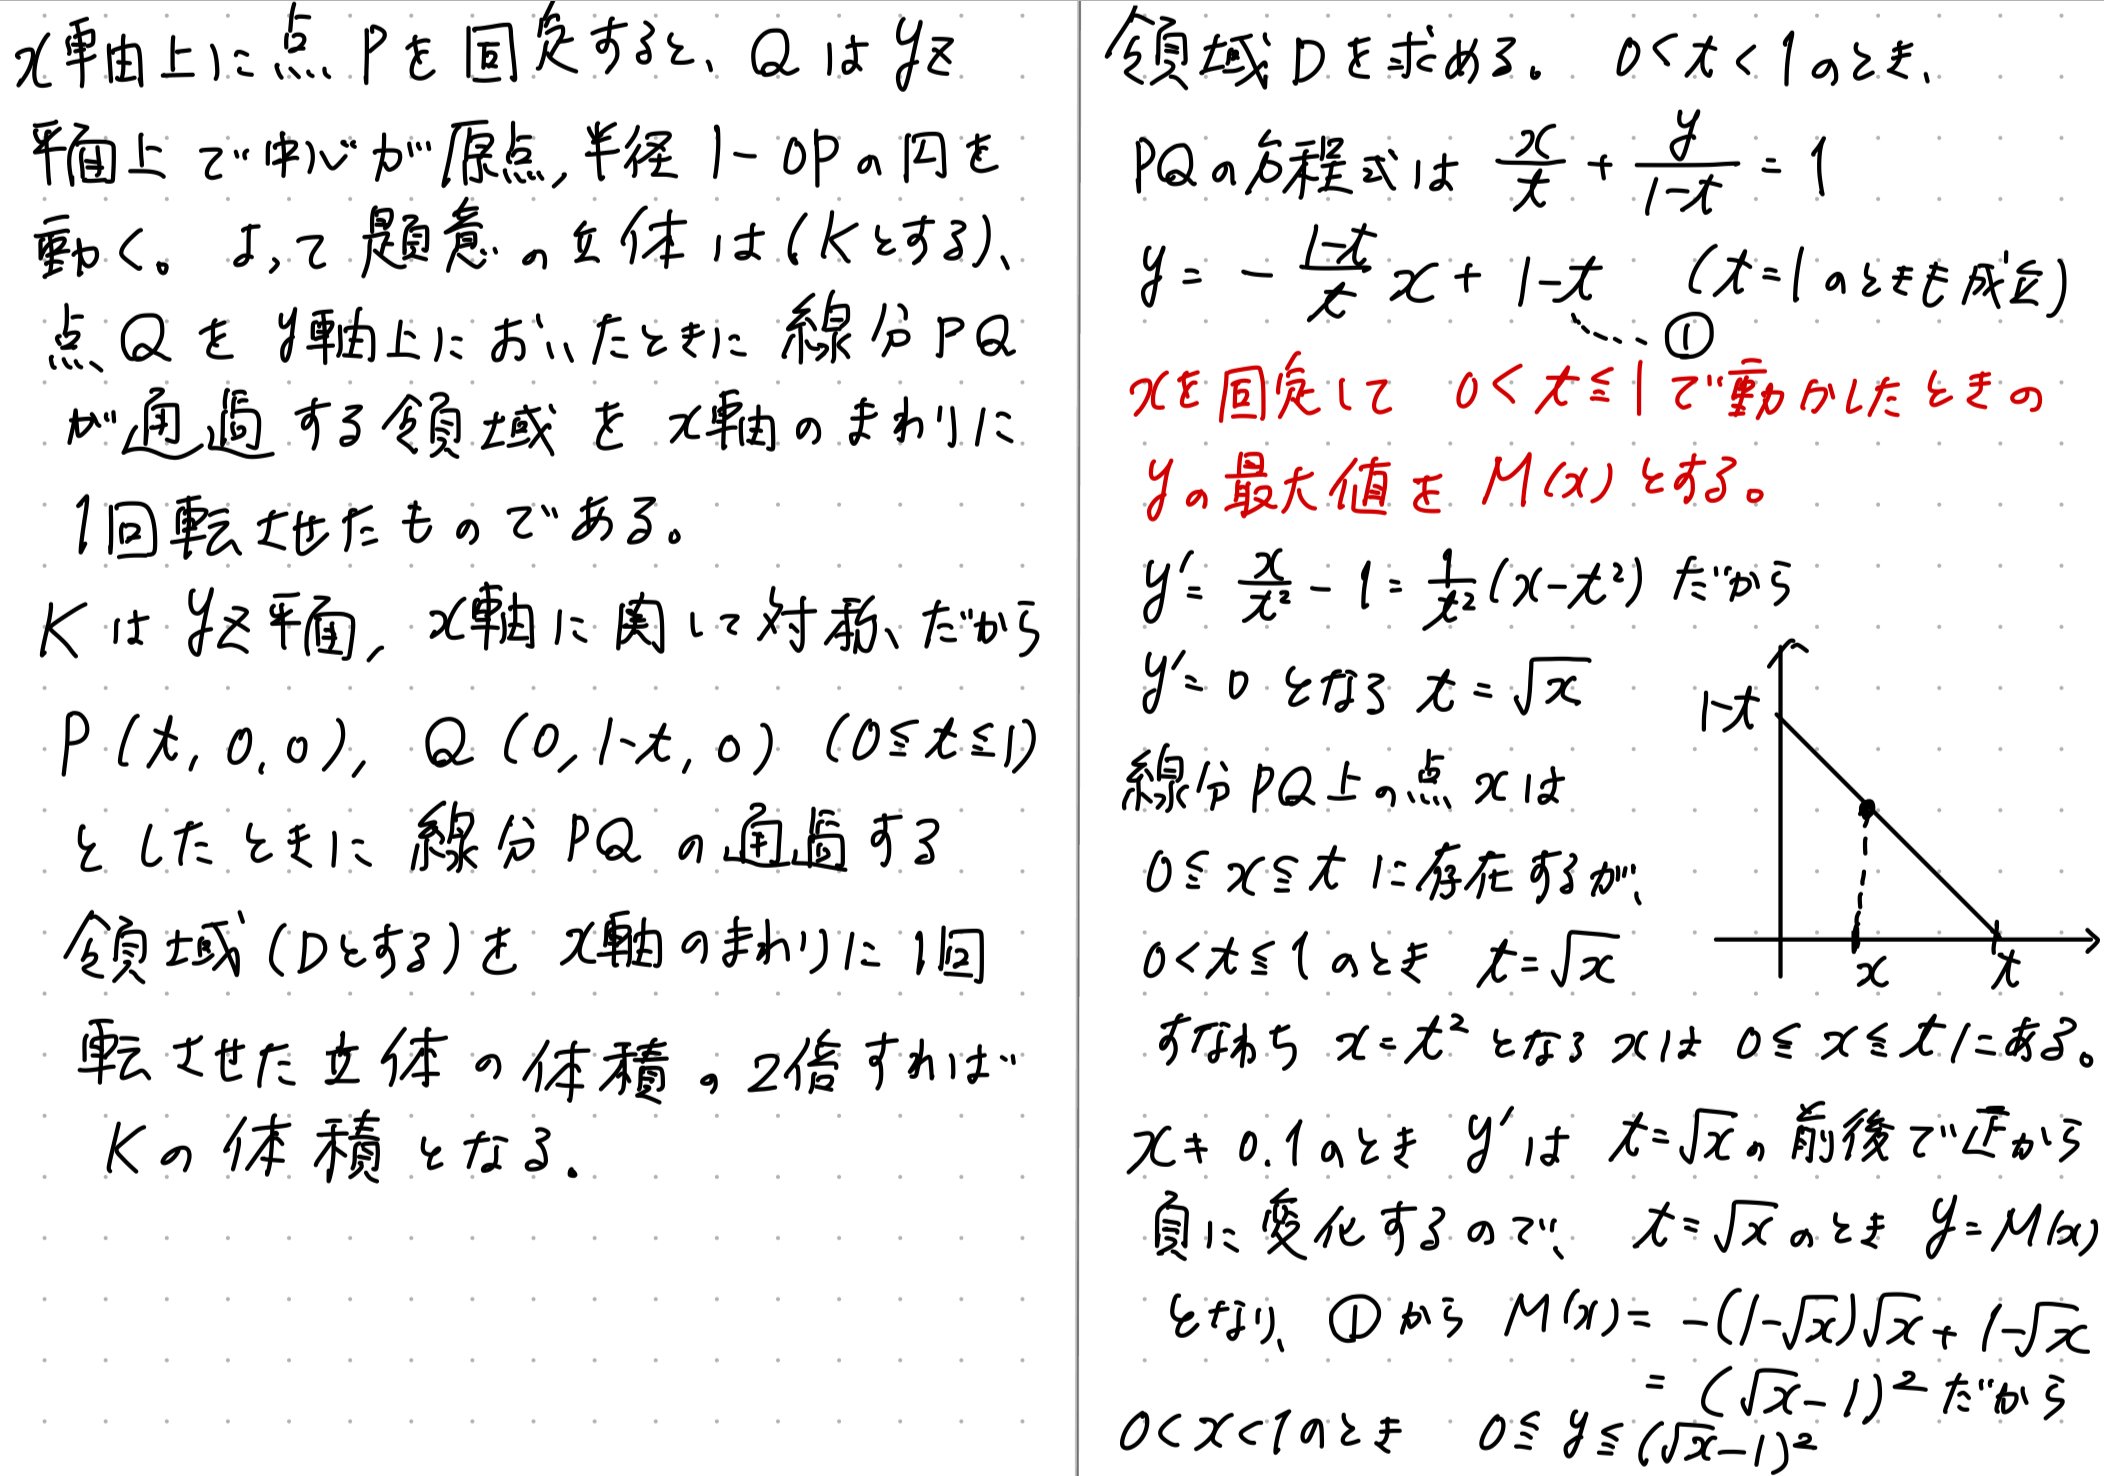 x軸上に点Pを固定すると、Qはyz
平面上で中心が原点,半径1-OPの円を
動く。よって題意の立体は(Kとする)、
点Qをy軸上においたときに線分PQ
が通過する領域をx軸のまわりに
1回転させたものである。
Kはyz平面,x軸に関して対称、だから
P(t,0,0), Q(0,1-t,0) (0≦t≦1)
としたときに線分PQの通過する
領域(Dとする)をx軸のまわりに1回
転させた立体の体積の2倍すれば
Kの体積となる.
領域Dを求める。 0<t<1のとき、
PQの方程式は x/t + y/(1-t) = 1
y = - (1-t)/t x + 1-t (t=1のときも成立)
……①
xを固定して 0<t≦1で動かしたときの
yの最大値をM(x)とする。
y'= x/t² - 1 = 1/t² (x-t²) だから
y'=0 となる t=√x
線分PQ上の点xは
0≦x≦t に存在するが、
0<t≦1 のとき t=√x
すなわち x=t² となるxは 0≦x≦tにある。
x≠0.1のとき y'は t=√xの前後で正から
負に変化するので、 t=√xのとき y=M(x)
となり、①から M(x)= -(1-√x)√x + 1-√x
= (√x-1)² だから
0<x<1のとき 0≦y≦(√x-1)²
1-t
x
t